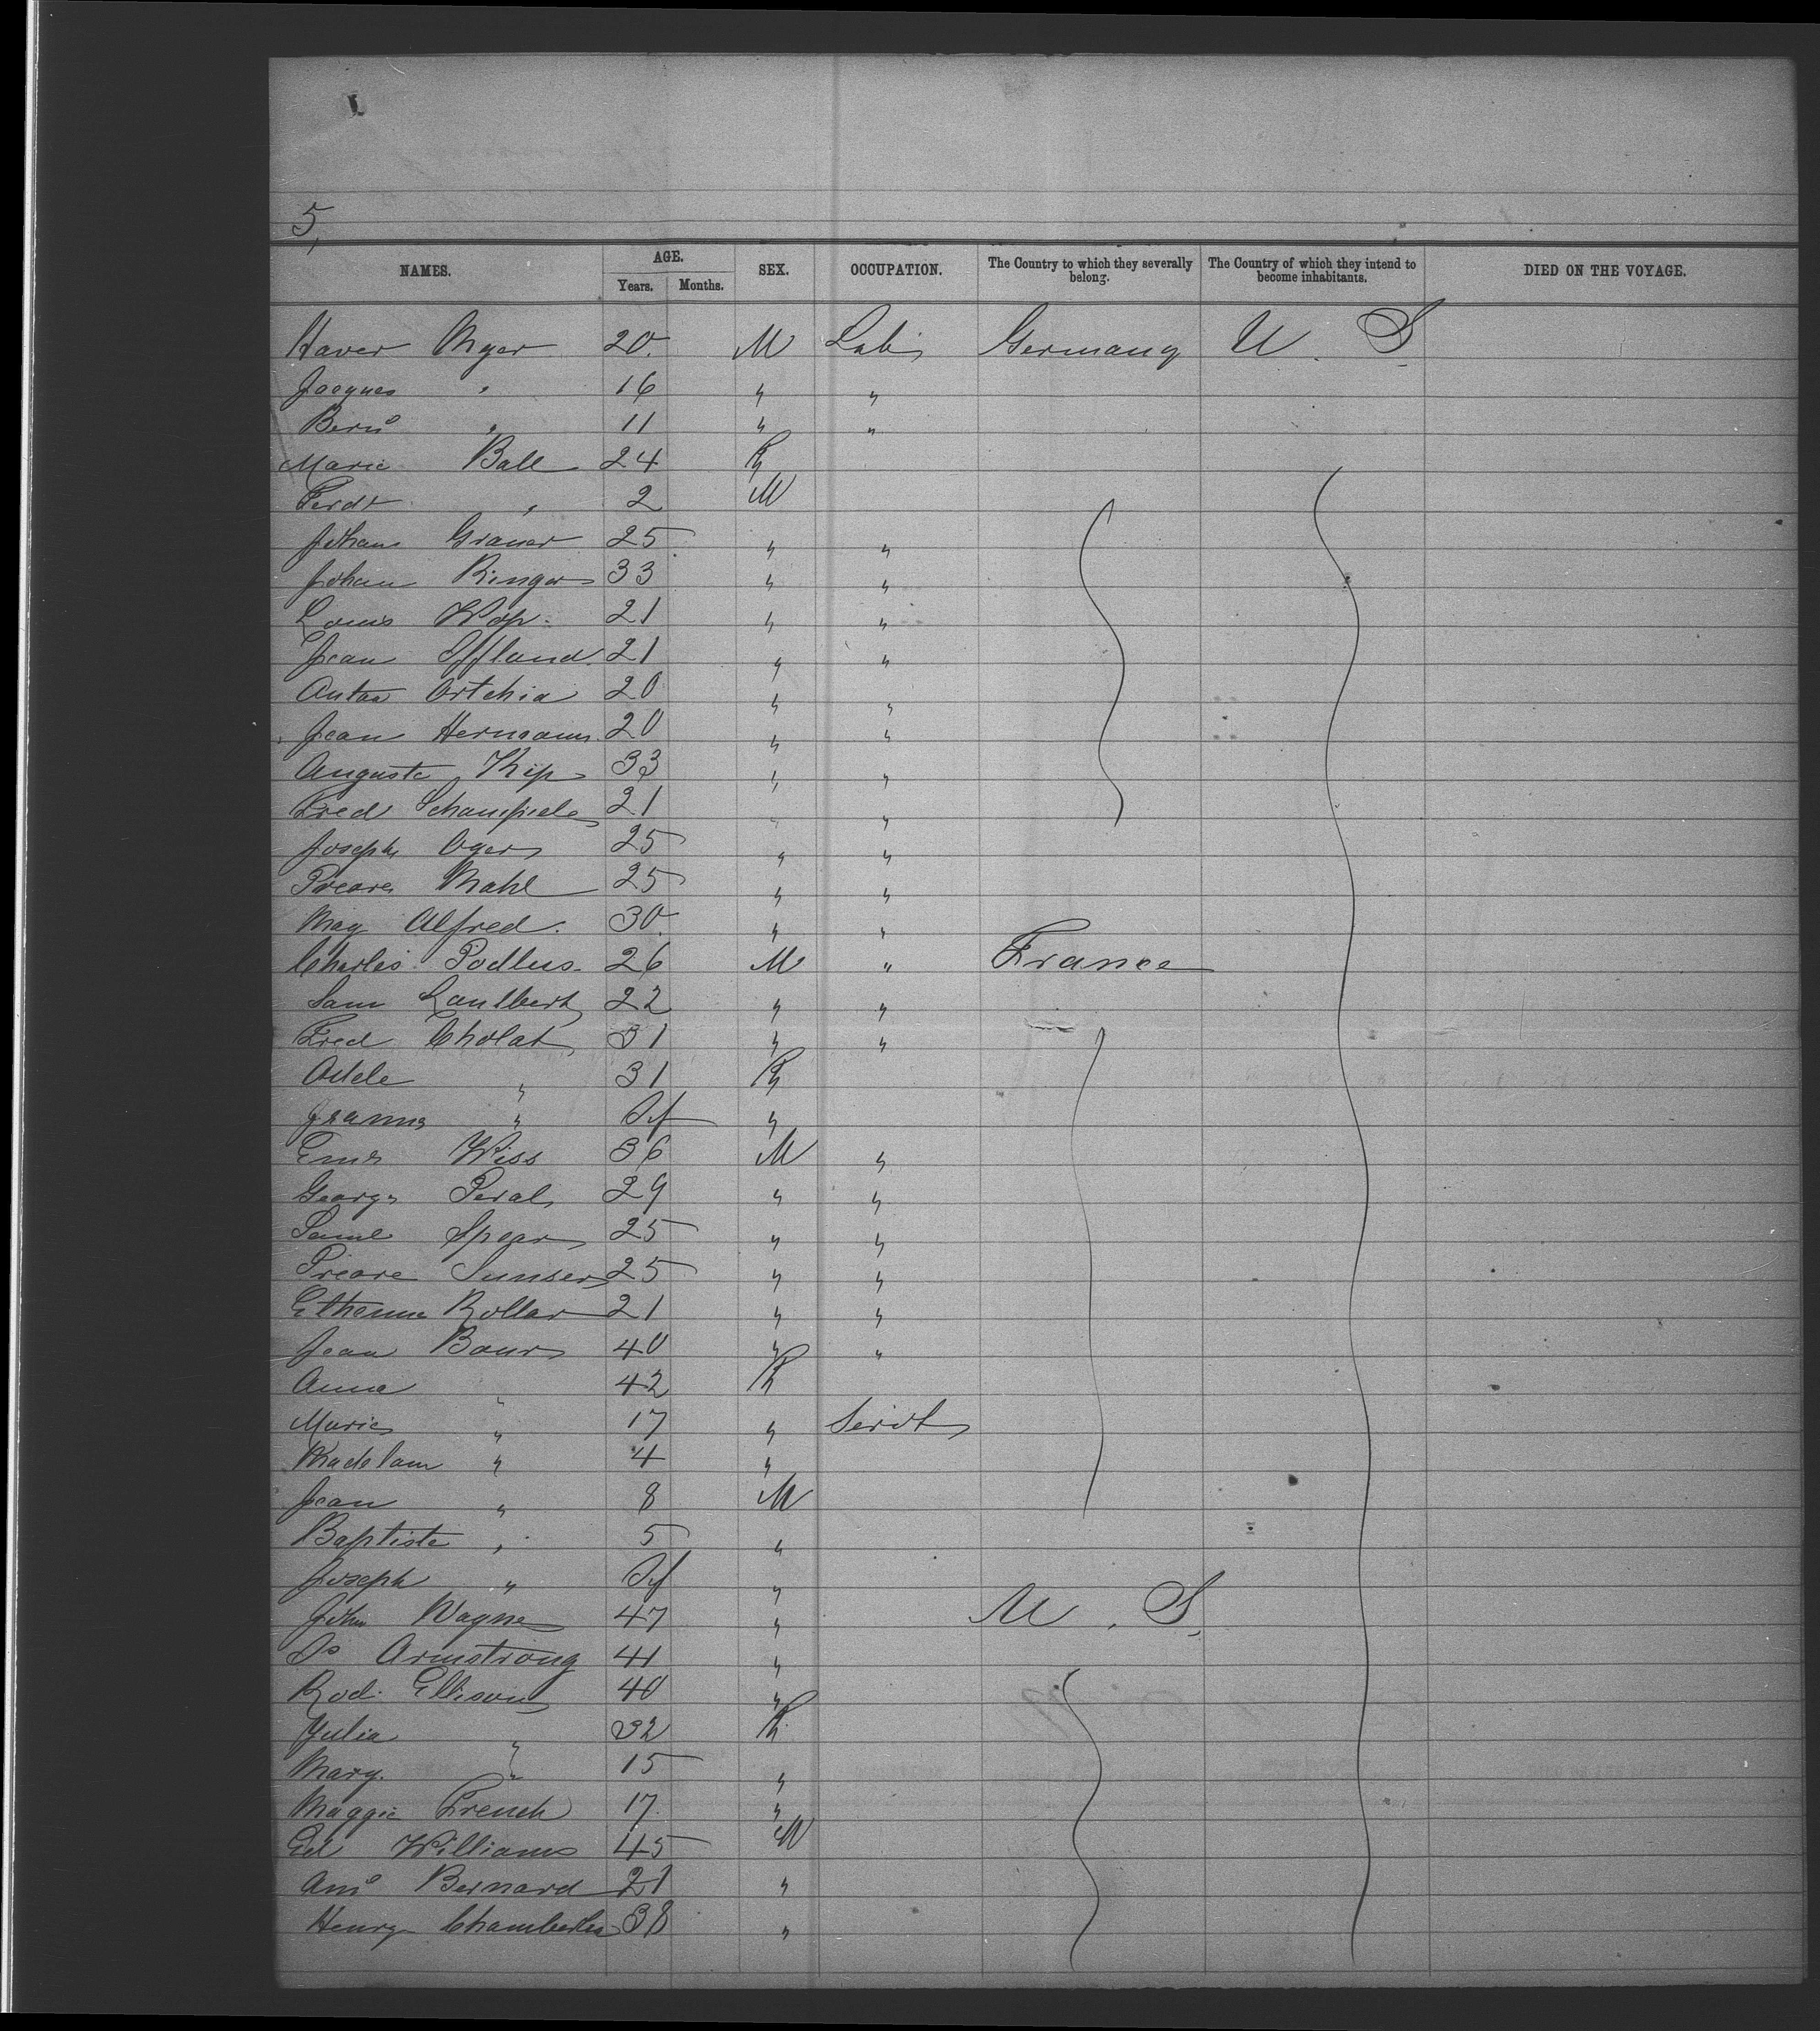 5,
NAMES. AGE. Years. Months. SEX. OCCUPATION. The Country to which they severally belong. The Country of which they intend to become inhabitants. DIED ON THE VOYAGE.
Haver Myer 20. M Lab Germany U. S
Jacques " 16 " "
" 11 " "
Marie Ball 24
Ferdt " 2 M
Johan Graner 25 " "
Johan Ringer 33 " "
Louis 21 " "
Jean Offland 21 " "
Anton Ortchia 20 " "
Jean Hermann 20 " "
Auguste Kip 33 " "
Fred 21 " "
Joseph Oger 25 " "
Mahl 25 " "
May Alfred. 30. " "
Charles Podlus 26 M " France
Sam Laulbert 22 " "
Fred Cholat 31 " "
Adele " 31
" "
Wiss 36 M "
George Peral 29 " "
Saml Sporr 25 " "
25 " "
Rollar 21 " "
Jean Baur 40 " "
Anna " 42
Marie " 17 " Servt
" 4 "
Jean " 8 M
Baptiste " 5 "
Joseph " "
John Wagner 47 " U. S.
Armstrong 41 "
Rod. Ellison 40 "
Julia " 32
Mary. " 15 "
Maggie French 17. "
Ed Williams 45 M
Bernard 21 "
Henry Chamberlin 38 "